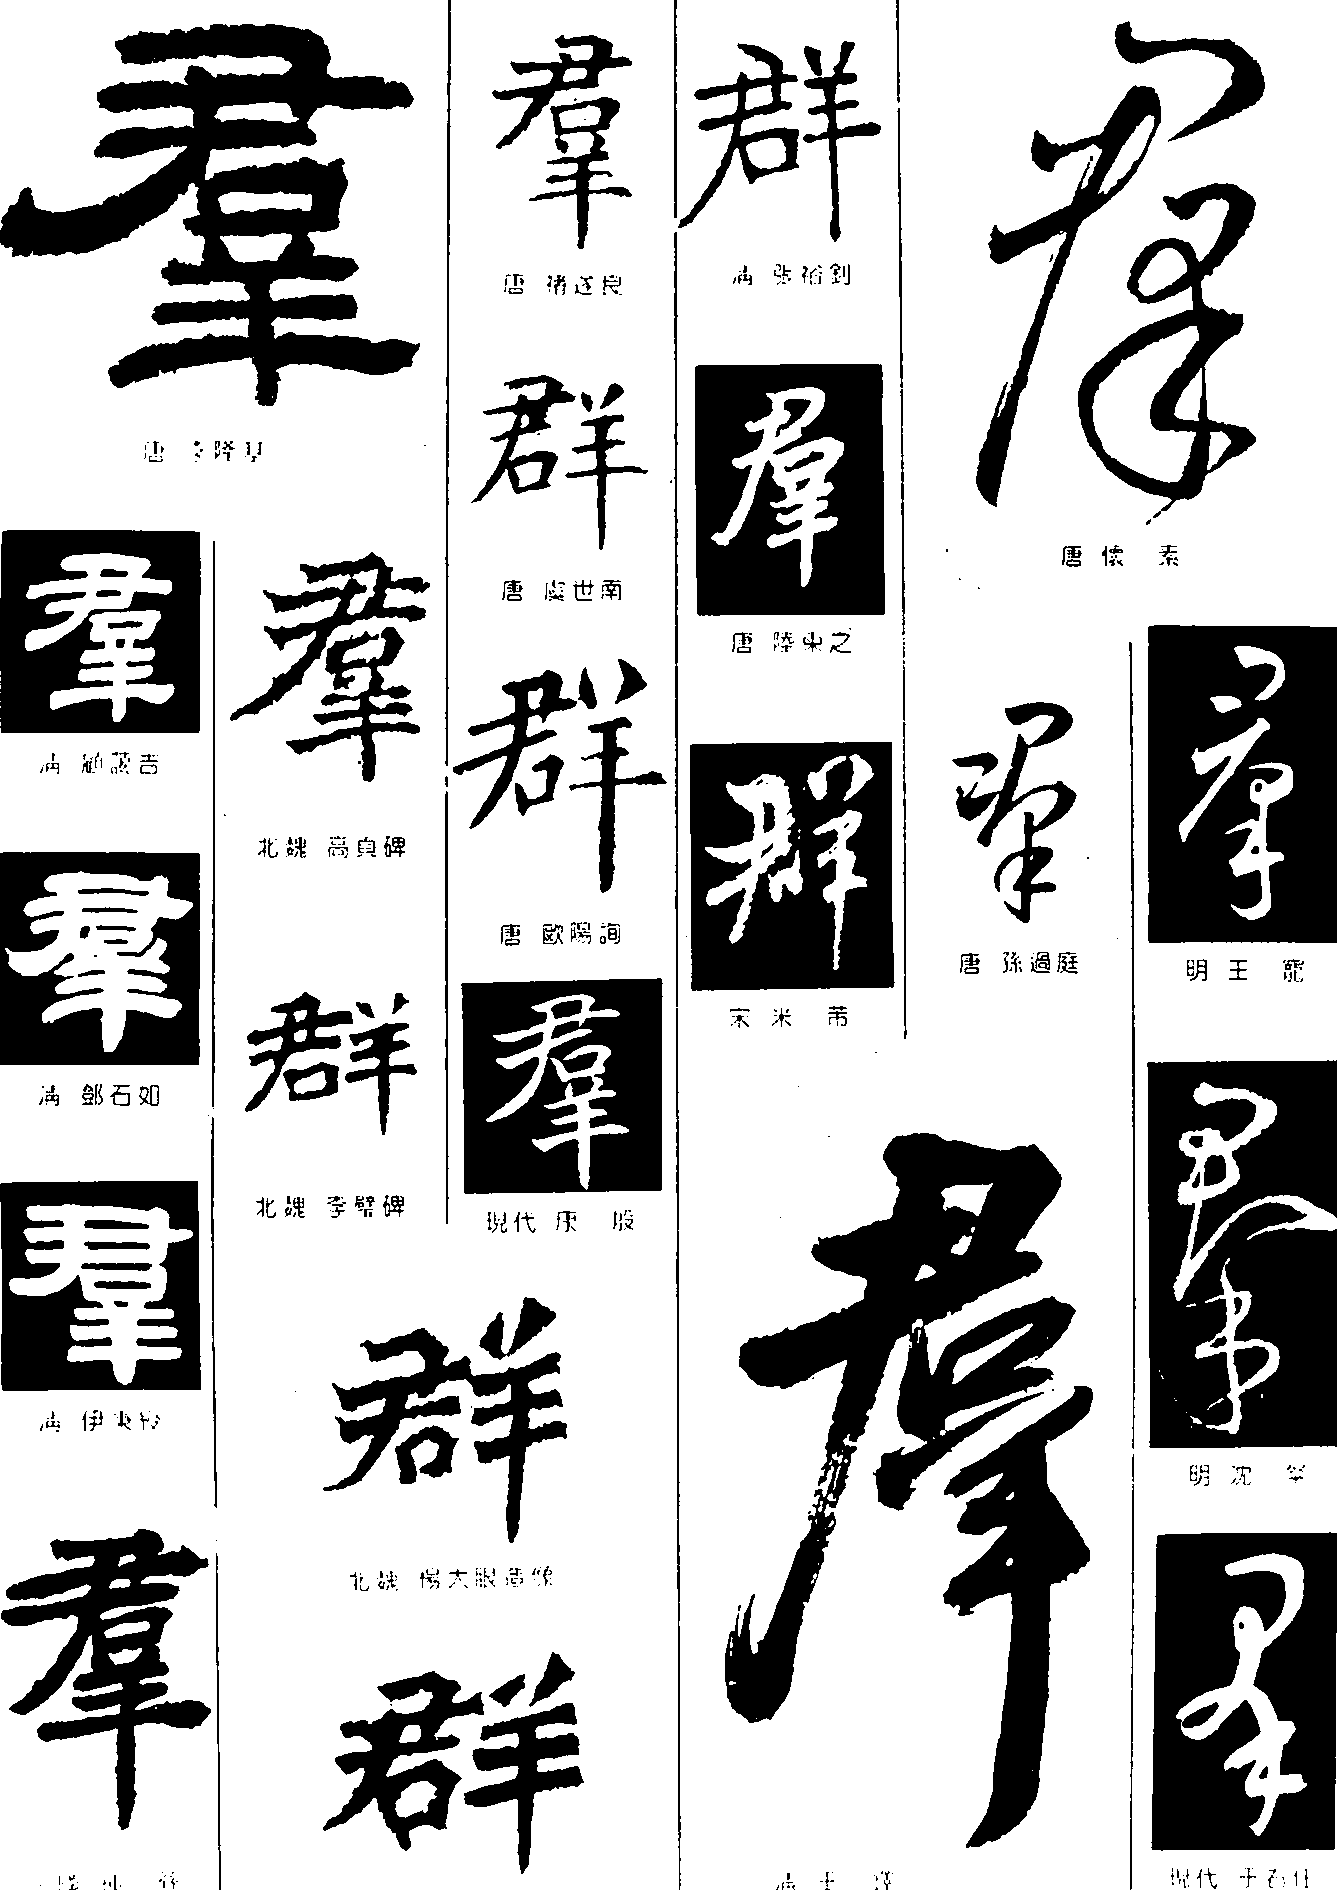 羣
唐 李隆基
羣
清 顧藹吉
羣
清 鄧石如
羣
清 伊秉綬
羣
羣
北魏 高貞碑
群
北魏 李璧碑
群
北魏 楊大眼造像
群
羣
唐 褚遂良
群
唐 虞世南
群
唐 歐陽詢
羣
現代 康 殷
群
清 張裕釗
羣
唐 陸柬之
群
宋 米 芾
羣
羣
唐 懷 素
羣
唐 孫過庭
羣
明 王 寵
羣
明 沈 粲
羣
現代 于右任